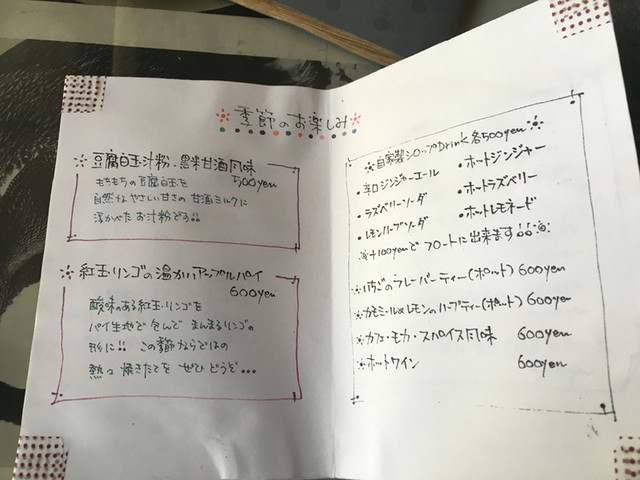 季節のお楽しみ
豆腐白玉汁粉・黒米甘酒風味
500yen
もちもちの豆腐白玉を
自然なやさしい甘さの甘酒ミルクに
浮かべたお汁粉です。。
紅玉リンゴの温かいアップルパイ
600yen
酸味のある紅玉リンゴを
パイ生地で包んで まんまるリンゴの
形に!! この季節ならではの
熱々焼きたてを ぜひどうぞ...
自家製シロップDrink 各500yen
・辛口ジンジャーエール ・ホットジンジャー
・ラズベリーソーダ ・ホットラズベリー
・レモンハーブソーダ ・ホットレモネード
※+100yenで フロートに出来ます。。
いちごのフレーバーティー(ポット) 600yen
カモミール&レモンのハーブティー(ポット) 600yen
カフェ・モカ・スパイス風味 600yen
ホットワイン 600yen